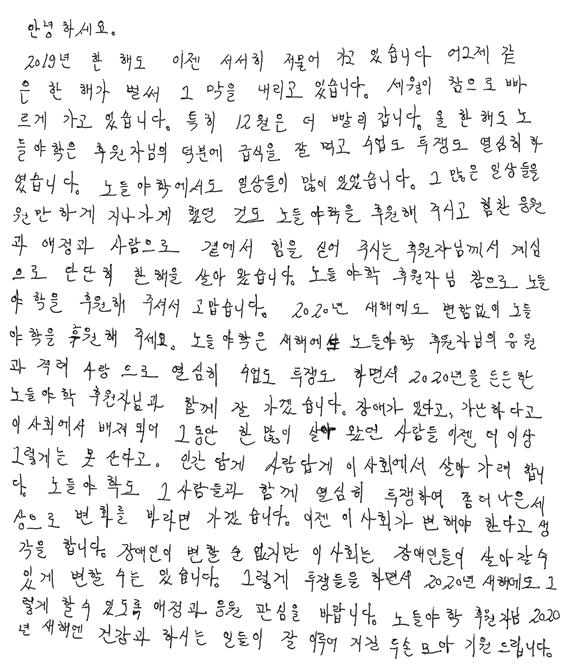 안녕하세요.
2019년 한 해도 이젠 서서히 저물어 가고 있습니다 어그제 같
은 한 해가 벌써 그 막을 내리고 있습니다. 세월이 참으로 빠
르게 가고 있습니다. 특히 12월은 더 빨리 갑니다. 올 한해도 노
들야학은 후원자님의 덕분에 급식을 잘 먹고 수업도 투쟁도 열심히 하
였습니다. 노들야학에서도 일상들이 많이 있었습니다. 그 많은 일상들을
원만하게 지나가게 했던 것도 노들야학을 후원해 주시고 힘찬 응원
과 애정과 사람으로 곁에서 힘을 실어 주시는 후원자님께서 계심
으로 단단히 한해을 살아 왔습니다. 노들야학 후원자님 참으로 노들
야학을 후원해 주셔서 고맙습니다. 2020년 새해에도 변함없이 노들
야학을 후원해 주세요. 노들야학은 새해에 노들야학 후원자님의 응원
과 격려 사랑으로 열심히 수업도 투쟁도 하면서 2020년을 든든한
노들야학 후원자님과 함께 잘 가겠습니다. 장애가 있다고, 가난하다고
이사회에서 배제되어 그동안 한 많이 살아 왔던 사람들 이젠 더 이상
그렇게는 못 산다고. 인간답게 사람답게 이 사회에서 살아 가려 합니
다. 노들야학도 그사람들과 함께 열심히 투쟁하여 좀더 나은 세
상으로 변화를 바라면 가겠습니다. 이젠 이 사회가 변해야 한다고 생
각을 합니다. 장애인이 변할 순 없지만 이 사회는 장애인들이 살아갈 수
있게 변할 수는 있습니다. 그렇게 투쟁들을 하면서 2020년 새해에도 그
렇게 할 수 있도록 애정과 응원 관심을 바랍니다. 노들야학 후원자님 2020
년 새해엔 건강과 하시는 일들이 잘 이루어 지길 두손 모아 기원 드립니다.